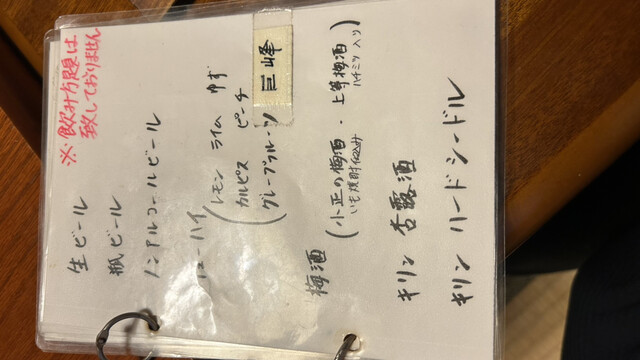 ※飲み方題は
致しておりません
生ビール
瓶ビール
ノンアルコールビール
ューハイ
レモン ライム ゆず
カルピス ピーチ
グレープフルーツ 巨峰
梅酒
(小正の梅酒・上等梅酒)
いも焼酎仕込み ハチミツ入り
キリン 杏露酒
キリン ハードシードル